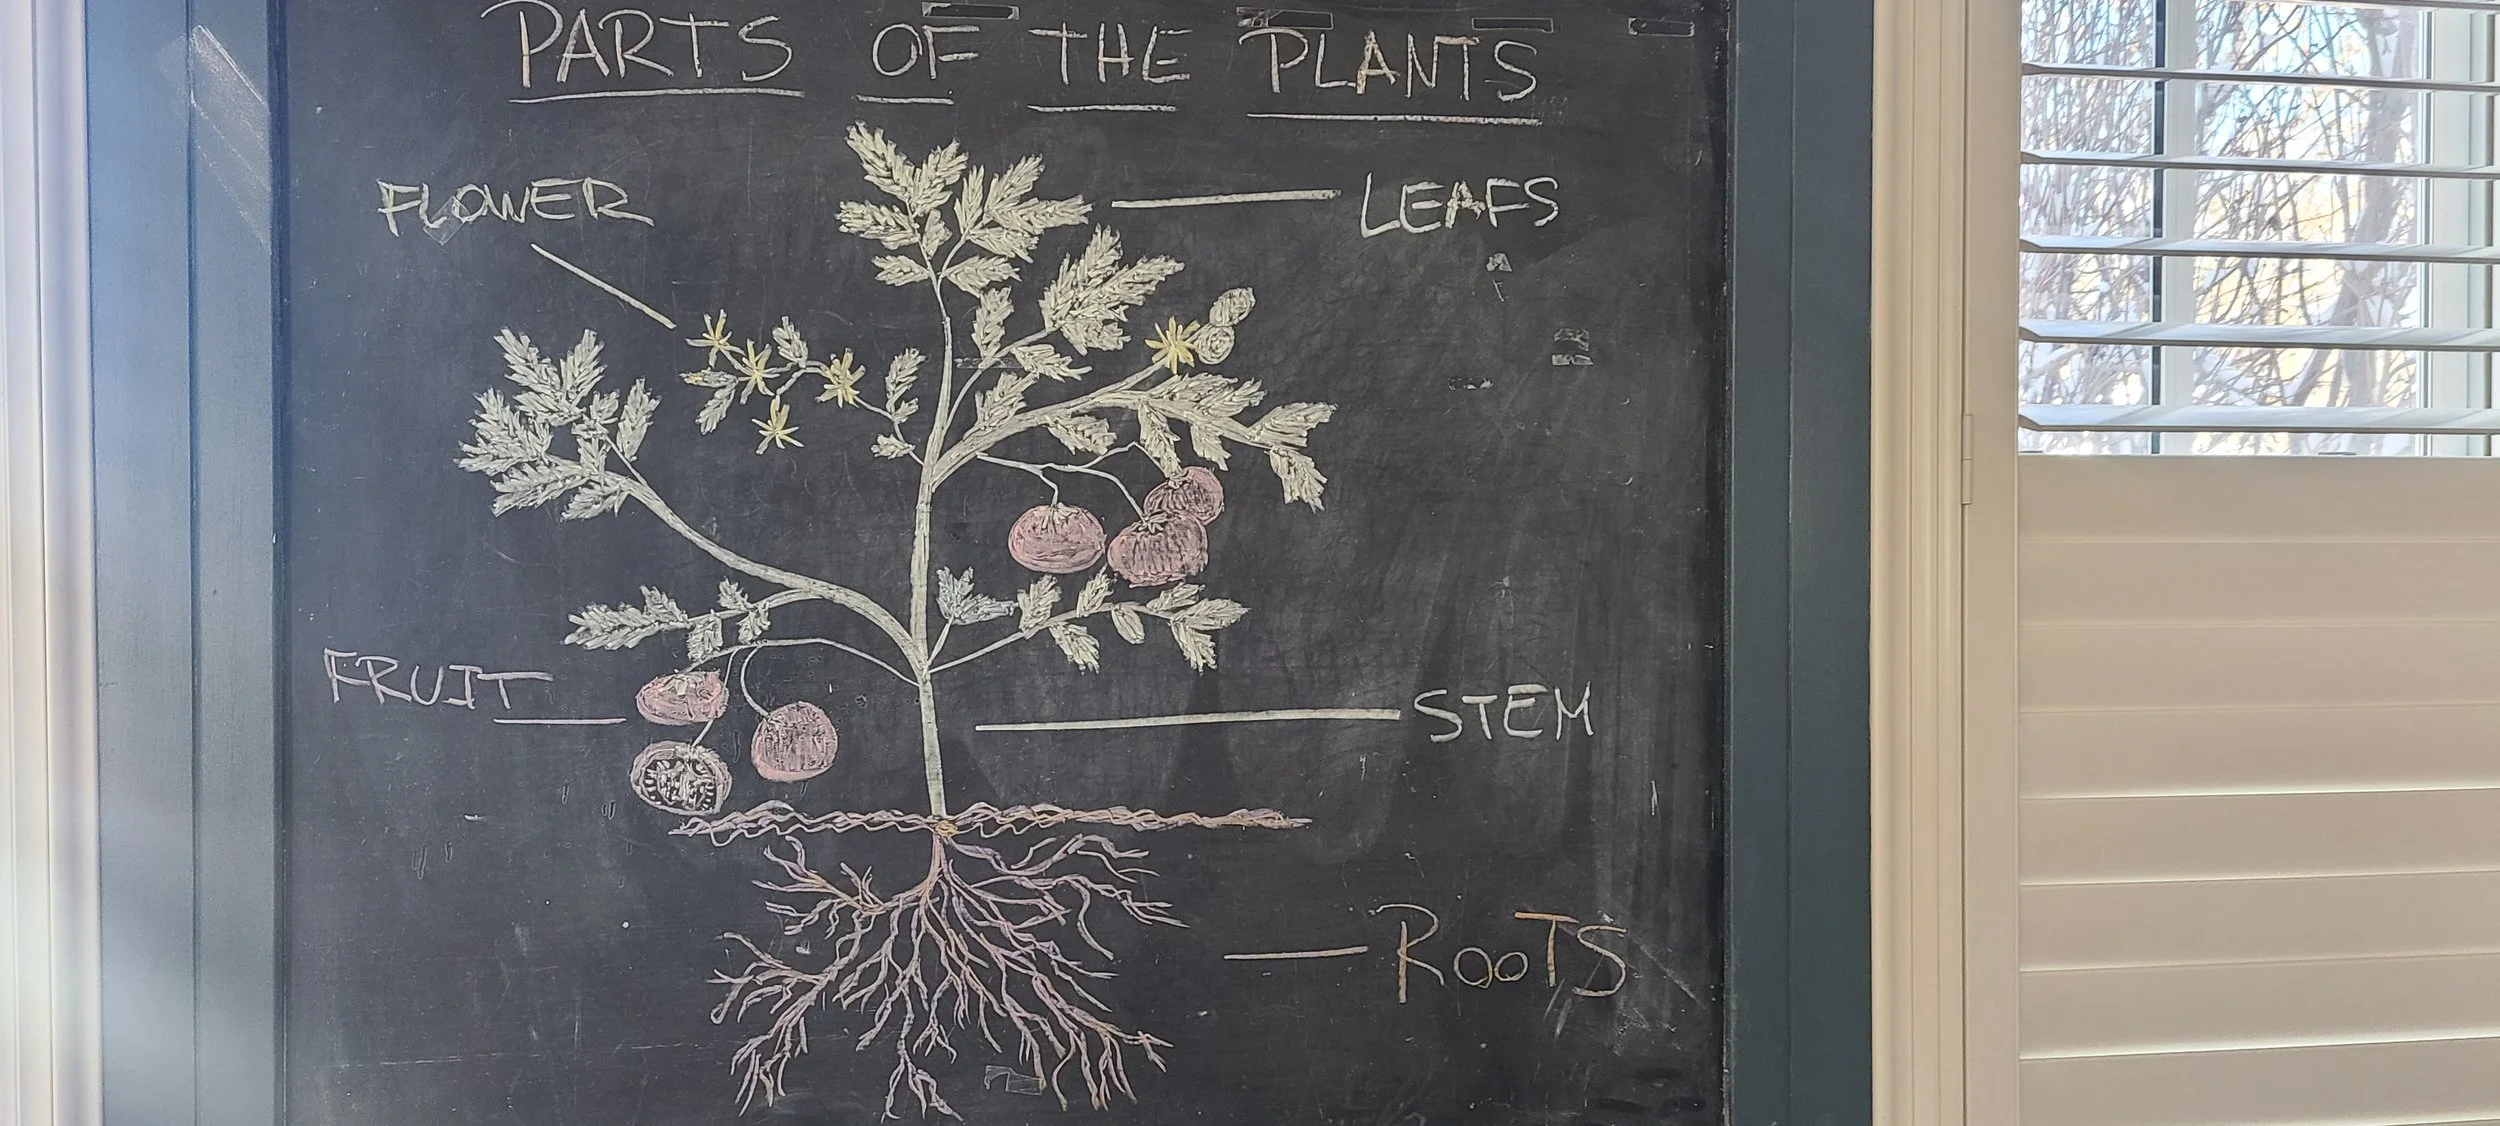 PARTS OF THE PLANTS
FLOWER
LEAFS
FRUIT
STEM
ROOTS